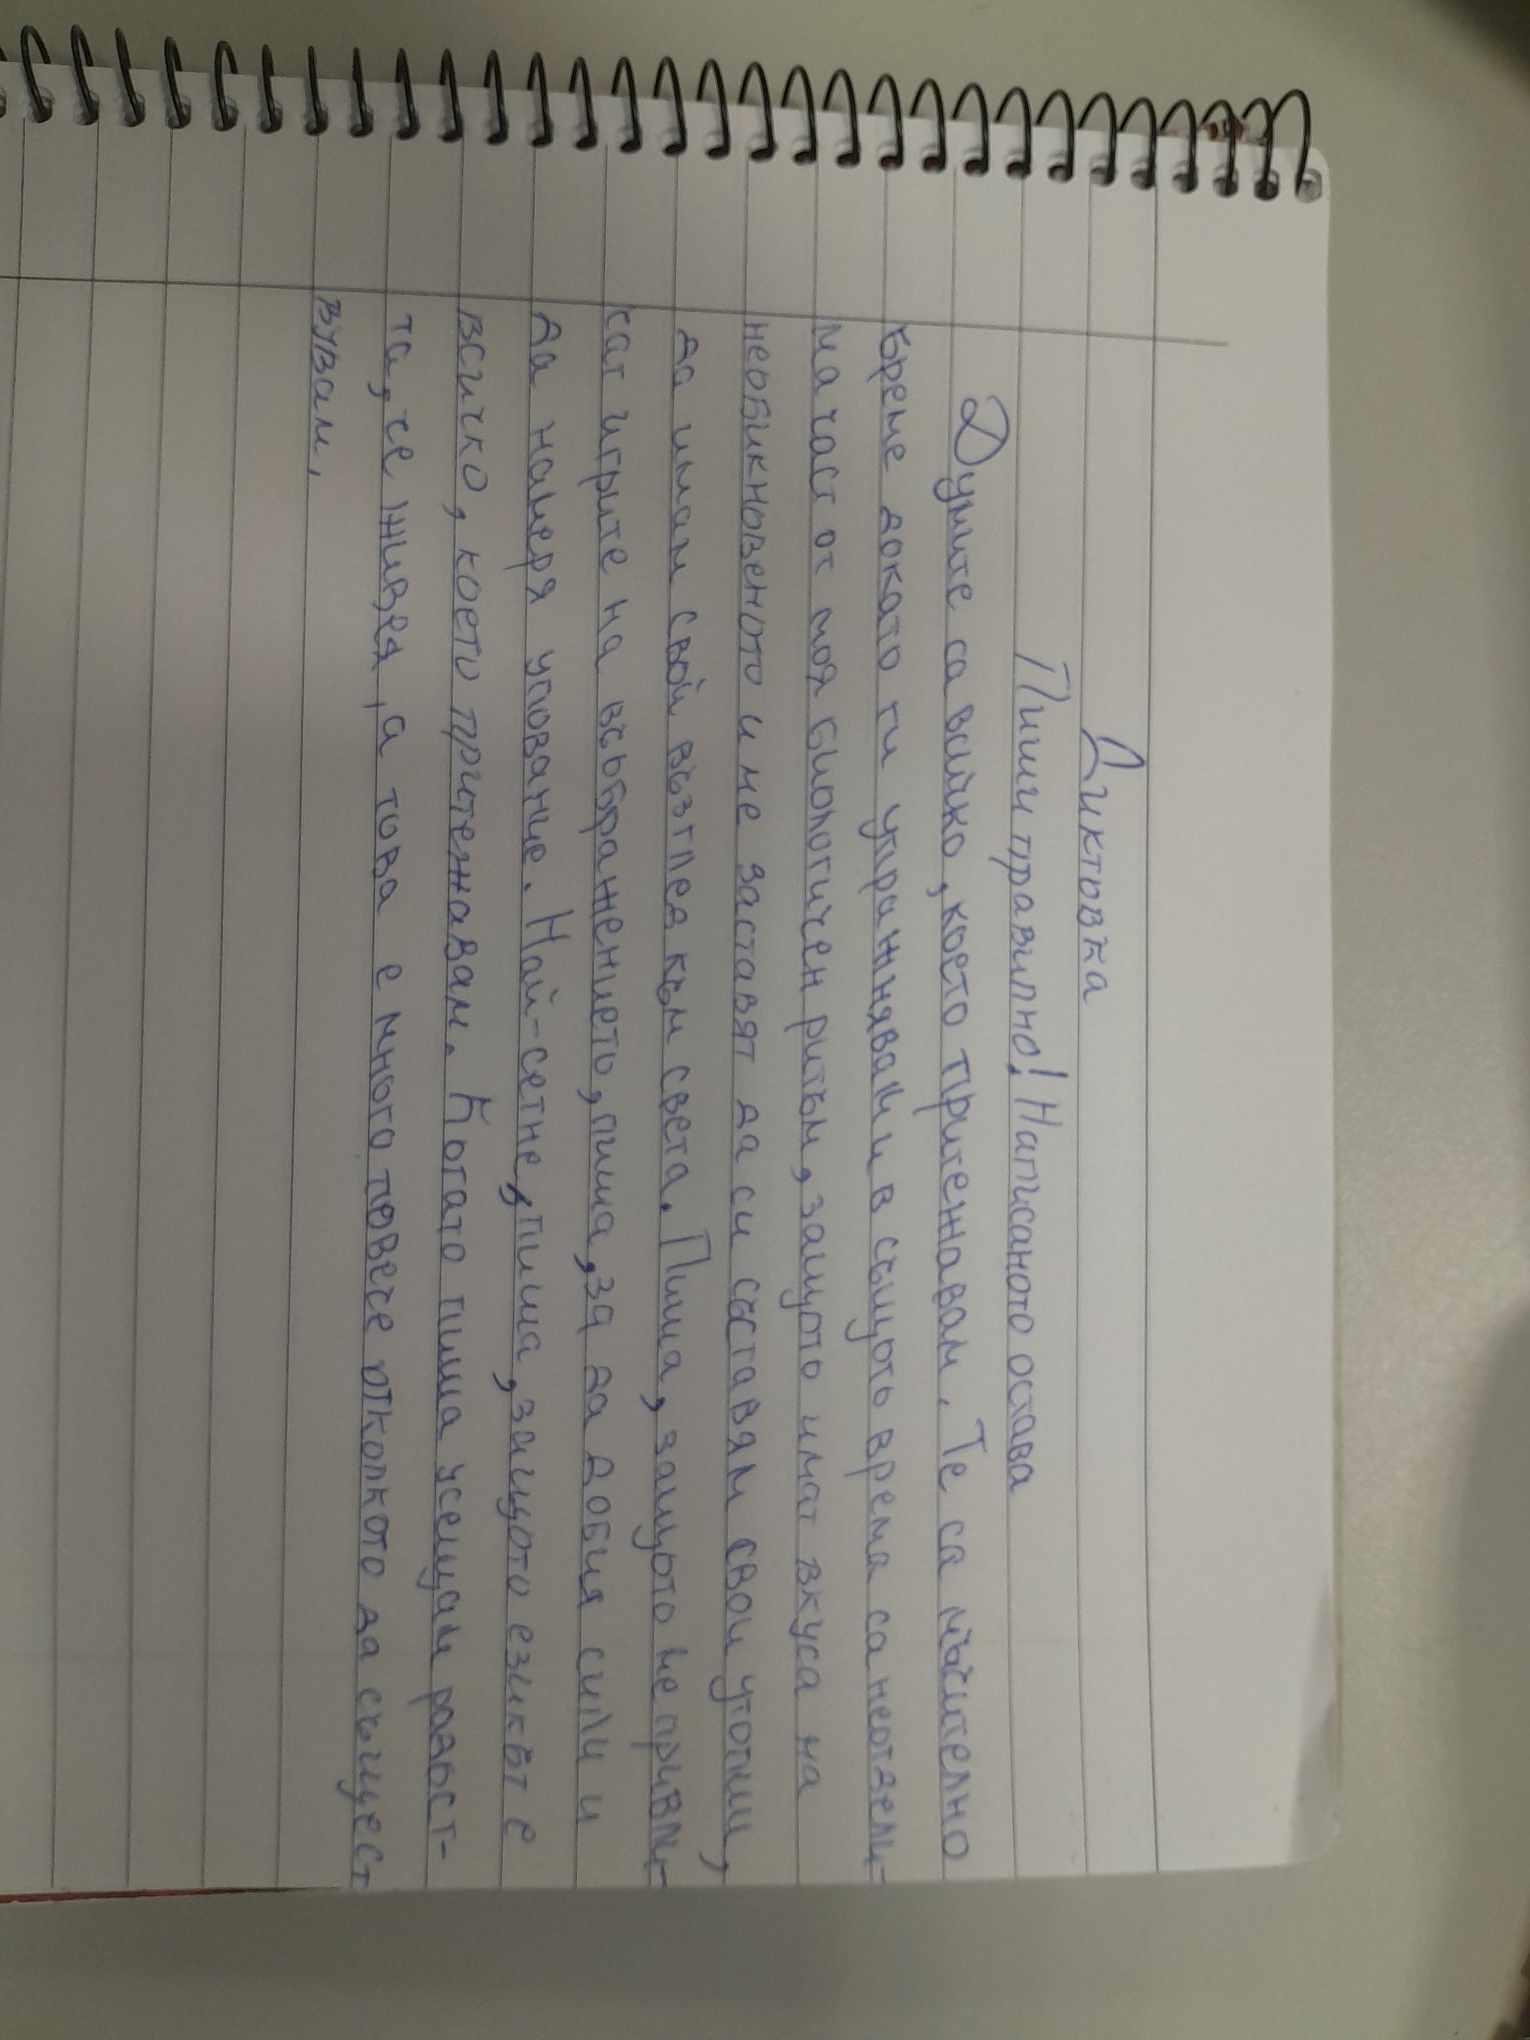 Диктовка
Пиши правилно! Написаното остава
Думите са всичко, което притежавам. Те са мъчително
бреме докато ги упражнявам и в същото врема са неотдели-
ма част от моя биологичен ритъм, защото имат вкуса на
необикновеното и ме заставят да си съставям свои утопии,
да имам свой възглед към света. Пиша, защото ме привли-
сат игрите на въображението, пиша, за да добия сили и
да намеря упование. Най-сетне, пиша, защото езикът е
всичко, което притежавам. Когато пиша усещам радост-
та, че живея, а това е много повече отколкото да същест
вувам.